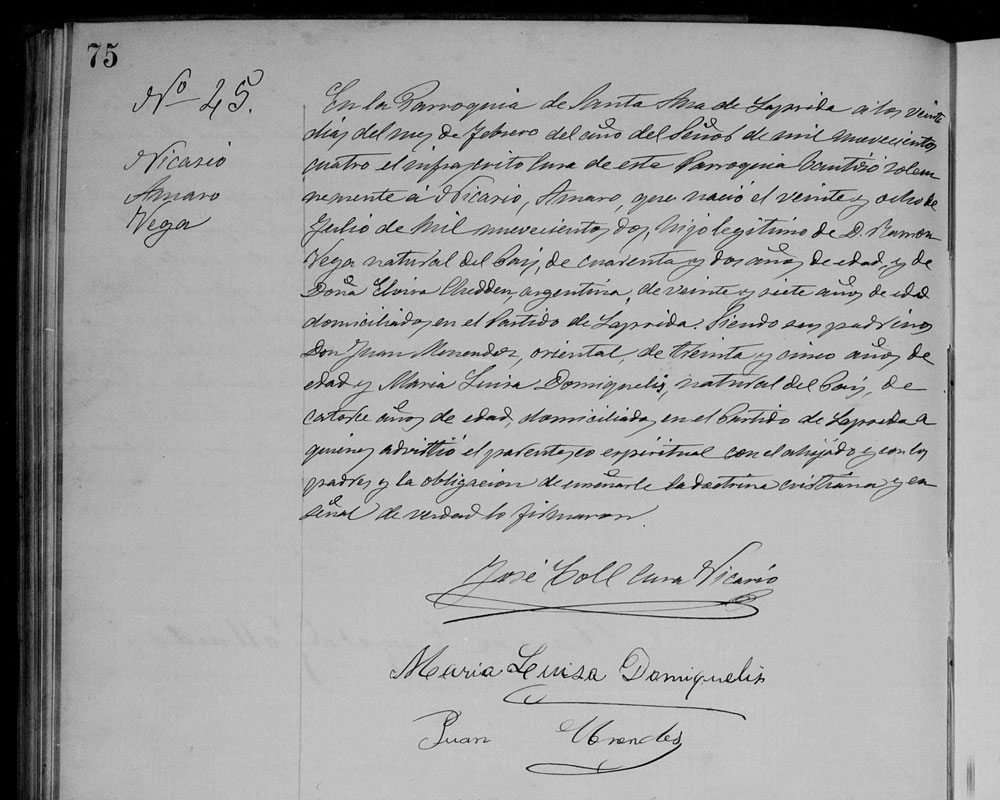 75
Nº 45.
Nicasio
Amaro
Vega
En la Parroquia de Santa Ana de Laprida a los veinte
dias del mes de Febrero del año del Señor de mil nuevecientos
cuatro el infrascrito Cura de esta Parroquia bautisó solem-
nemente á Nicasio, Amaro, que nació el veinte y ocho de
Julio de mil nuevecientos dos, hijo legitimo de D. Ramon
Vega natural del Pais, de cuarenta y dos años de edad, y de
Doña Elvira Chedden, argentina, de veinte y siete años de edad
domiciliados en el Partido de Laprida. Siendo sus padrinos
Don Juan Menendez, oriental, de treinta y cinco años de
edad y Maria Luisa Domiquelis, natural del Pais, de
catorce años de edad, domiciliados en el Partido de Laprida a
quienes advirtió el parentesco espiritual con el ahijado y con los
padres y la obligacion de enseñarle la doctrina cristiana y en
señal de verdad lo firmaron.
José Coll Cura Vicario
Maria Luisa Domiquelis
Juan